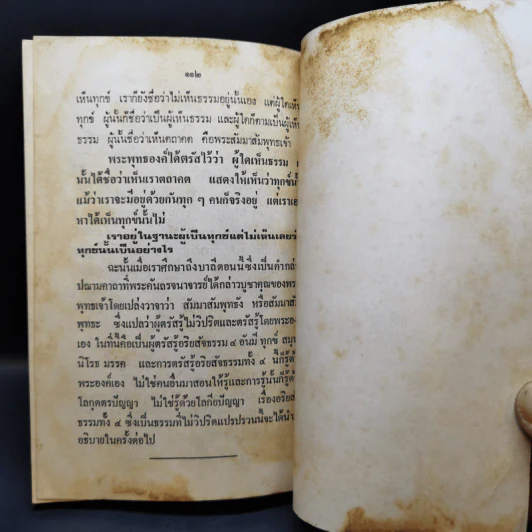 ๑๑๒
เห็นทุกข์ เราก็ยังชื่อว่าไม่เห็นธรรมอยู่นั้นเอง แต่ผู้ใดเห็น
ทุกข์ ผู้นั้นก็ชื่อว่าเป็นผู้เห็นธรรม และผู้ใดก็ตามเป็นผู้เห็น
ธรรม ผู้นั้นชื่อว่าเห็นตถาคต คือพระสัมมาสัมพุทธเจ้า
พระพุทธองค์ได้ตรัสไว้ว่า ผู้ใดเห็นธรรม
นั้นได้ชื่อว่าเห็นเราตถาคต แสดงให้เห็นว่าทุกข์นั้น
แม้ว่าเราจะมีอยู่ด้วยกันทุก ๆ คนก็จริงอยู่ แต่เราเอง
หาได้เห็นทุกข์นั้นไม่
เราอยู่ในฐานะผู้เป็นทุกข์แต่ไม่เห็นเลยว่า
ทุกข์นั้นเป็นอย่างไร
ฉะนั้นเมื่อเราศึกษาถึงบาลีตอนนี้ซึ่งเป็นคำกล่าว
ปณามคาถาที่พระคันถรจนาจารย์ได้กล่าวบูชาคุณของพระ
พุทธเจ้าโดยเปล่งวาจาว่า สัมมาสัมพุทธัง หรือสัมมาสัม
พุทธะ ซึ่งแปลว่าผู้ตรัสรู้ไม่วิปริตและตรัสรู้โดยพระองค์
เอง ในที่นี้คือเป็นผู้ตรัสรู้อริยสัจธรรม ๔ อันมี ทุกข์ สมุ
นิโรธ มรรค และการตรัสรู้อริยสัจธรรมทั้ง ๔ นี้ก็รู้ด้วย
พระองค์เอง ไม่ใช่คนอื่นมาสอนให้รู้และการรู้นั้นก็รู้ด้วย
โลกุตตรปัญญา ไม่ใช่รู้ด้วยโลกียปัญญา เรื่องอริยสัจ
ธรรมทั้ง ๔ ซึ่งเป็นธรรมที่ไม่วิปริตแปรปรวนนี้จะได้นำ
อธิบายในครั้งต่อไป